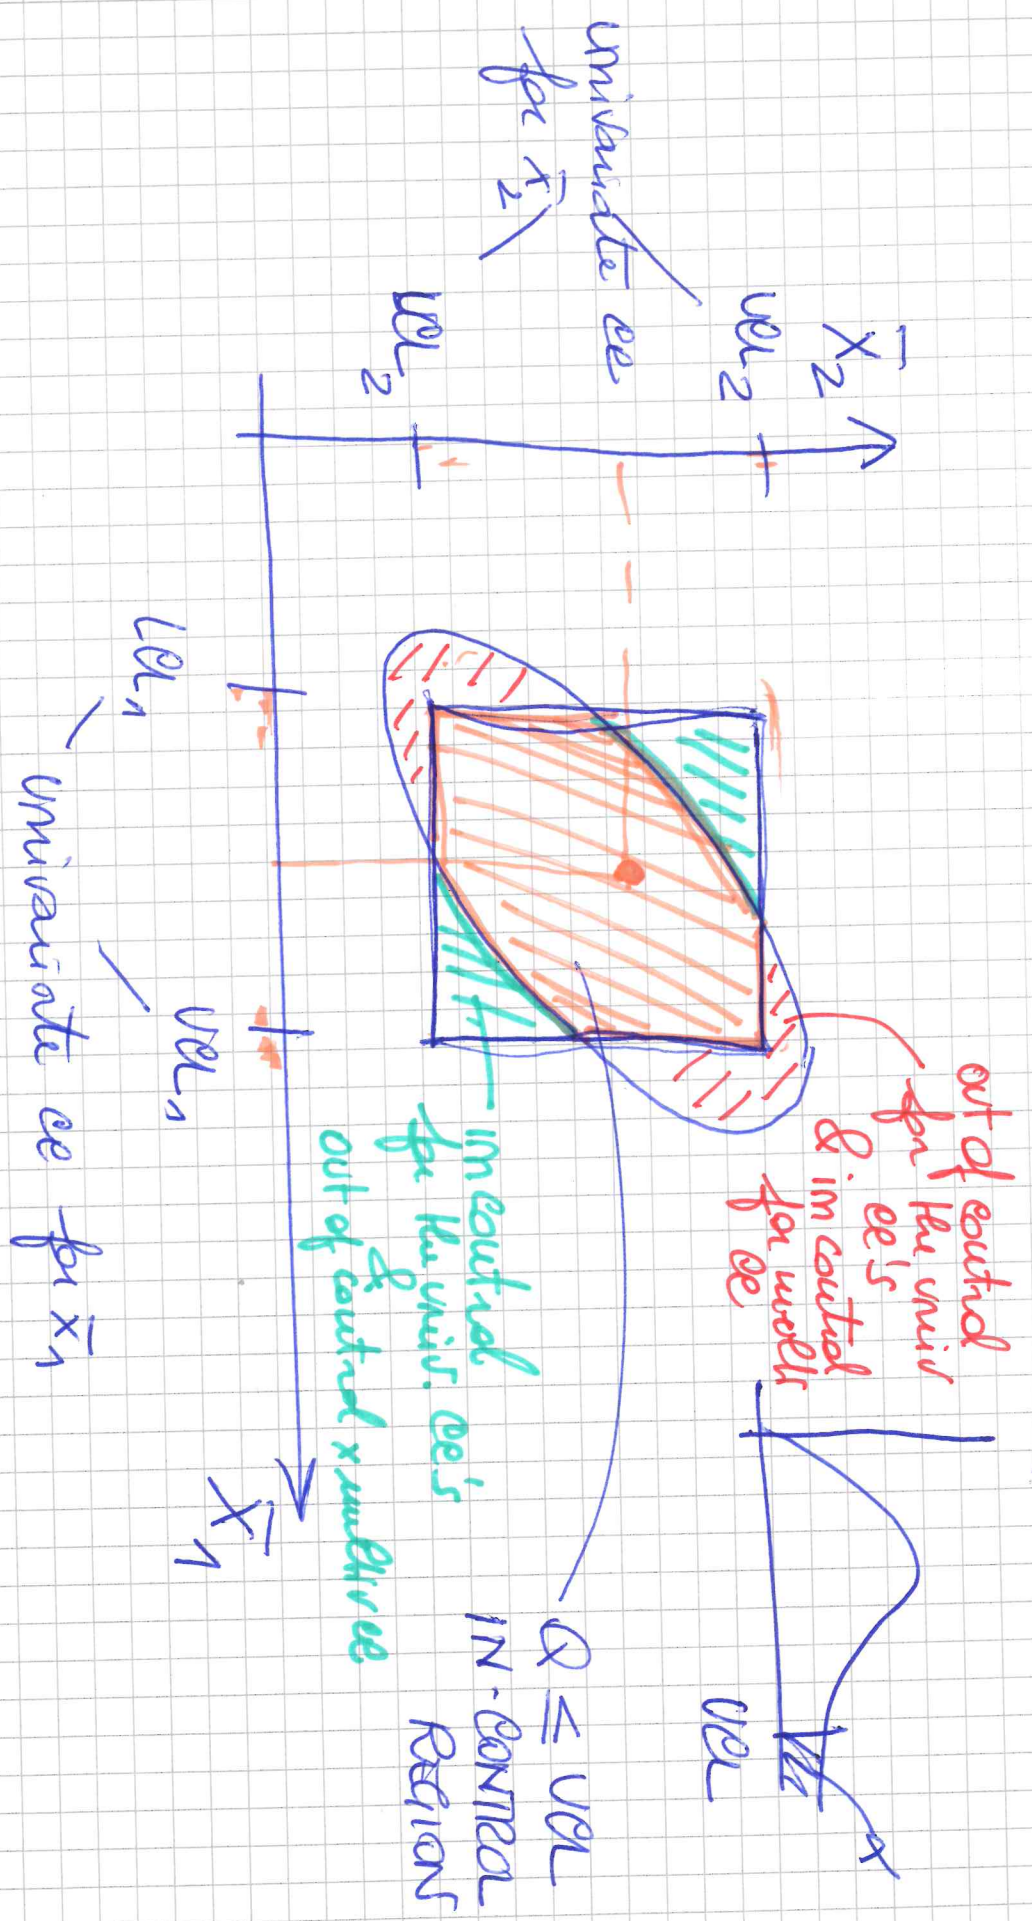 X̄2
UCL2
univariate cc
for x̄2
LCL2
LCL1
UCL1
univariate cc for x̄1
X̄1
out of control
for the univ
cc's
& in control
for multiv
cc
in control
for the univ. cc's
&
out of control x multiv cc
UCL
α
Q ≤ UCL
IN-CONTROL
REGION